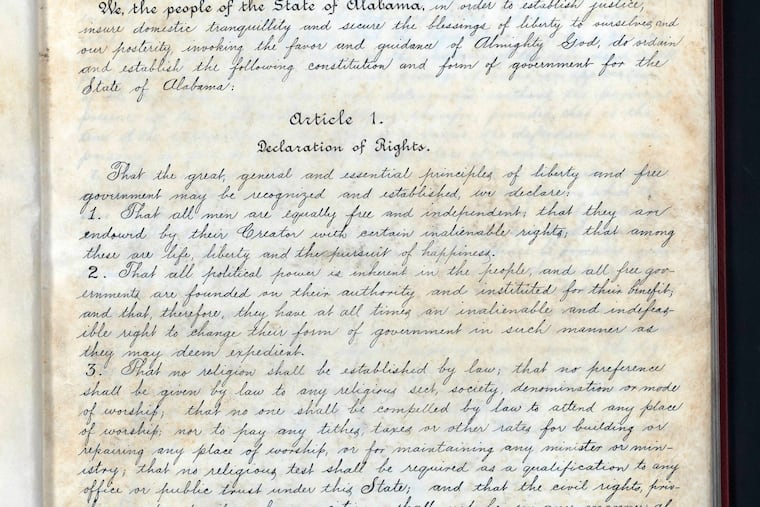 We, the people of the State of Alabama, in order to establish justice,
insure domestic tranquillity and secure the blessings of liberty to ourselves, and
our posterity, invoking the favor and guidance of Almighty God, do ordain
and establish the following constitution and form of government for the
State of Alabama:
Article 1.
Declaration of Rights.
That the great, general and essential principles of liberty and free
government may be recognized and established, we declare:
1. That all men are equally free and independent; that they are
endowed by their Creator with certain inalienable rights; that among
these are life, liberty and the pursuit of happiness.
2. That all political power is inherent in the people, and all free gov-
ernments are founded on their authority and instituted for their benefit;
and that, therefore, they have at all times an inalienable and indefeas-
ible right to change their form of government in such manner as
they may deem expedient.
3. That no religion shall be established by law; that no preference
shall be given by law to any religious sect, society, denomination or mode
of worship; that no one shall be compelled by law to attend any place
of worship; nor to pay any tithes, taxes or other rates for building or
repairing any place of worship, or for maintaining any minister or min-
istry; that no religious test shall be required as a qualification to any
office or public trust under this State; and that the civil rights, priv-